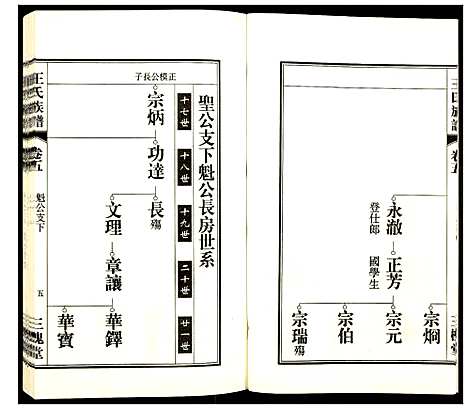 王氏族譜
卷五
三槐堂
永澈
登仕郎
正芳
國學生
宗炯
宗元
宗伯
宗瑞 殤
聖公支下魁公長房世系
十七世
十八世
十九世
二十世
廿一世
正模公長子
宗炳
功達
長 殤
文理
章讓
華鐸
華寶
王氏族譜
卷五
魁公支下
五
三槐堂